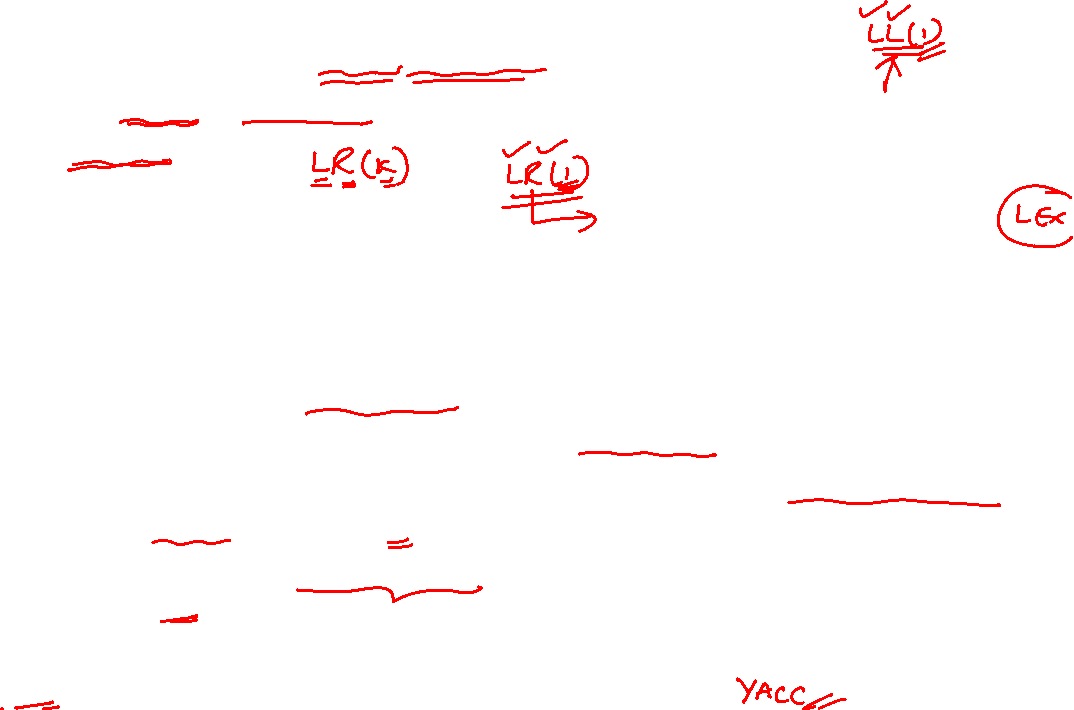 LL(1)
LR(K) LR(1)
LEX
YACC